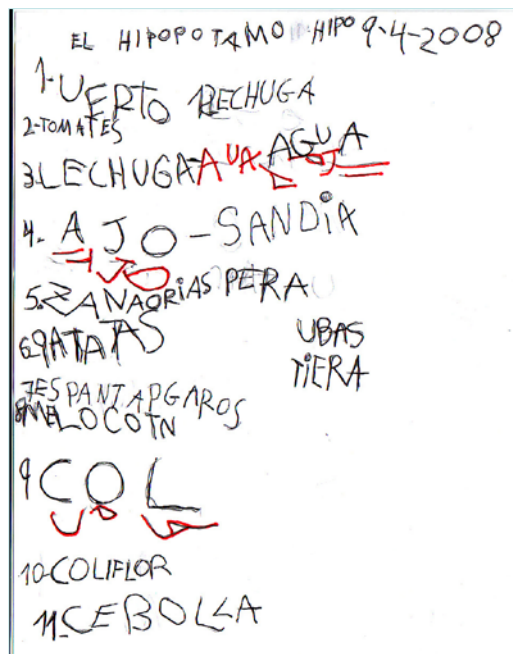 EL HIPOPOTAMO HIPO 9-4-2008
1-UERTO 12LECHUGA
2-TOMATES
3.LECHUGA-AUA AGUA
4.- AJO-SANDiA
AJO
5.ZANAORiAS PERA
6.PATATAS UBAS
TiERA
7ESPANTAPGAROS
8MELOCOTN
9COL
10-COLIFLOR
11-CEBOLLA